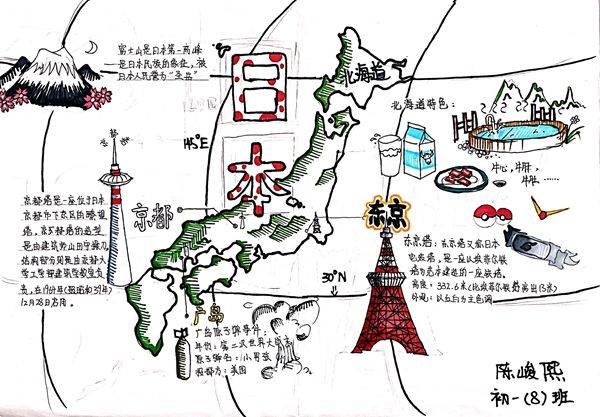 富士山是日本第一高峰
是日本民族的象征，被
日本人民誉为“圣岳”
日
本
145°E
北海道
北海道特色：
牛心，牛肝，
牛胃……
京都塔
京都塔是一座位于日本
京都市下京区的瞭望
塔，京都塔的造型
是由建筑师山田守操刀
结构部分则是由京都大
学工学部建筑学教室负
责，在1964年(昭和39年)
12月28日启用。
京都
东京
东京塔：东京塔又名日本
电波塔，是一座以埃菲尔铁
塔为范本建造的一座铁塔。
高度：332.6米(比埃菲尔铁塔高出13米)
外观：以红白为主色调
30°N
广岛
广岛原子弹事件：
年份：第二次世界大战末
原子弹名：小男孩
投放方：美国
陈峻熙
初一(8)班